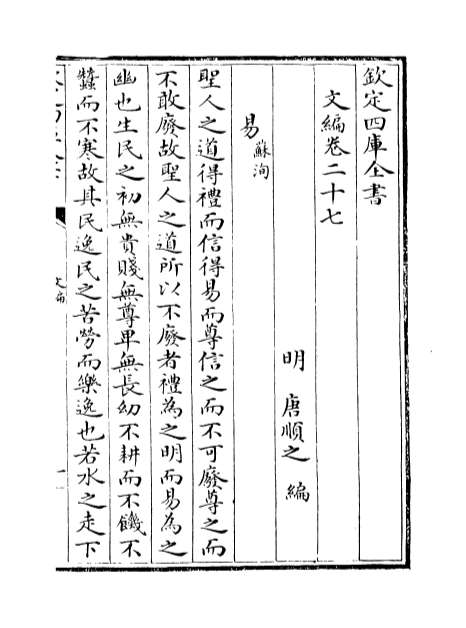 欽定四庫全書
文編卷二十七
明 唐順之 編
易 蘇洵
聖人之道得禮而信得易而尊信之而不可廢尊之而
不敢廢故聖人之道所以不廢者禮為之明而易為之
幽也生民之初無貴賤無尊卑無長幼不耕而不饑不
蠶而不寒故其民逸民之苦勞而樂逸也若水之走下
文編
一